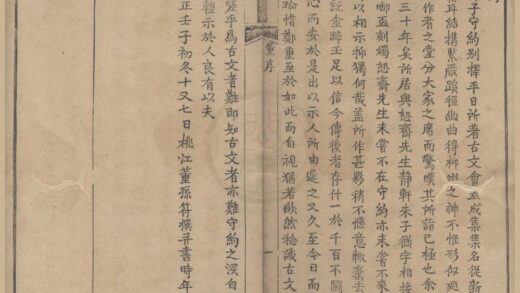 子守約別擇平日所著古文會爲成集集名從新
耳結構緊嚴蹊徑幽曲得柳州之神不惟形似迥
作者之堂分大家之席而驚嘆其所詣已極也余
三十年矣所居與恕齋先生靜軒朱子衡宇相接
啣盃刻燭恕齋先生未嘗不在守約亦未嘗不來
以相示抑獨何哉蓋所作甚夥稍不愜意輒棄去
金粹玉足以信今傳後者存什一於千百不圖
心而安於是出以示人所由遲之又久至今日而
珍惜鄭重至於如此而自視猶若欿然殆識古文
董序
一
嗟乎爲古文者難即知古文者亦難守約之深自
示於人良有以夫
正壬子初冬十又七日桃江董孫符撰并書時年